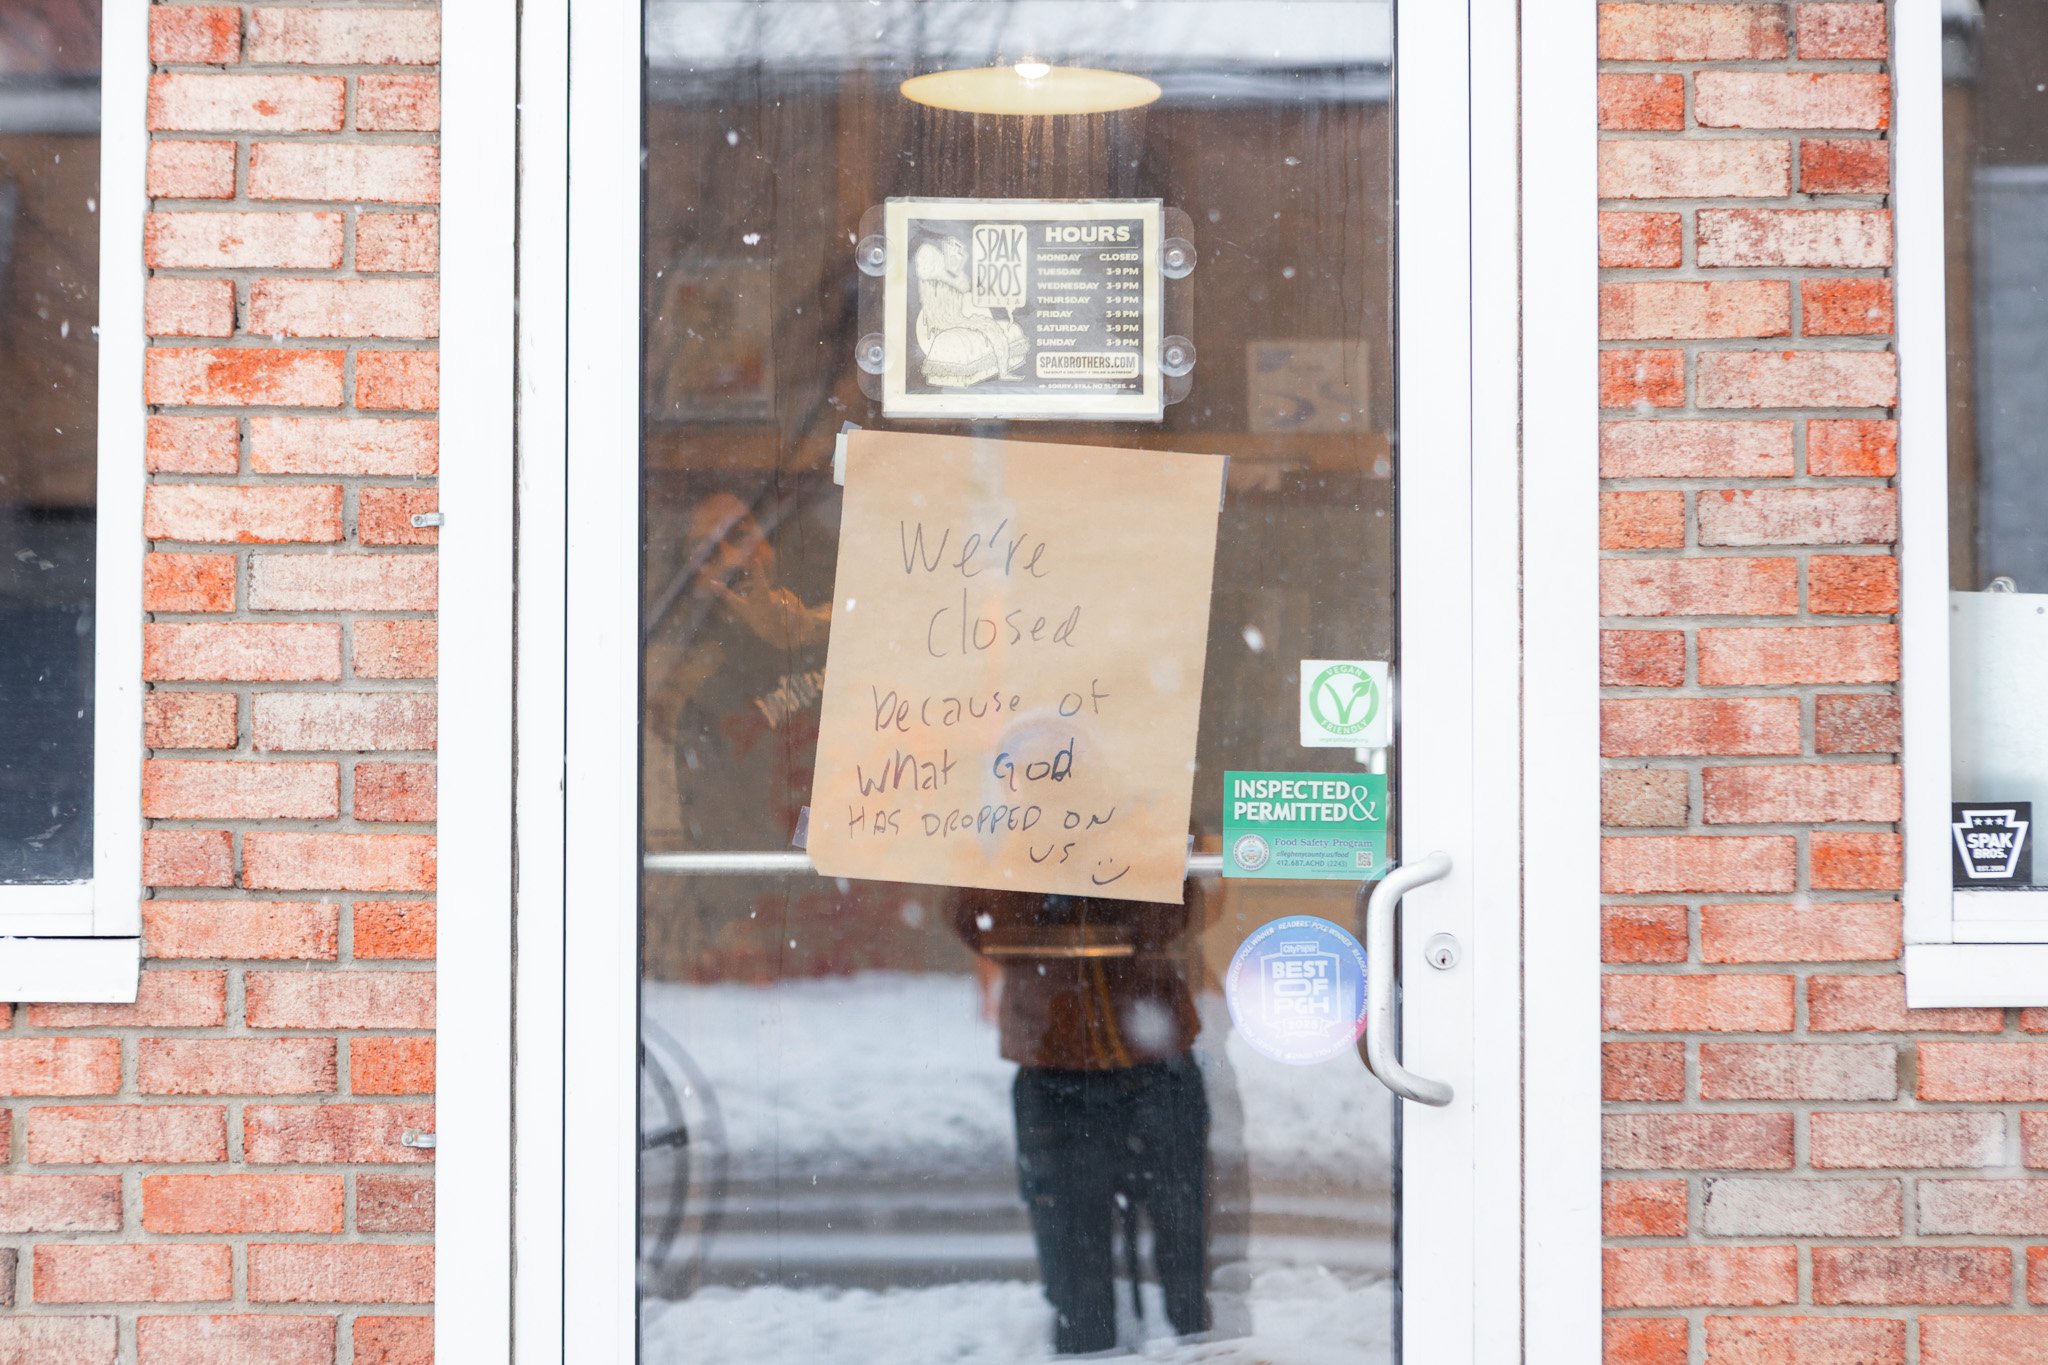 SPAK
BROS
PIZZA
HOURS
MONDAY CLOSED
TUESDAY 3-9 PM
WEDNESDAY 3-9 PM
THURSDAY 3-9 PM
FRIDAY 3-9 PM
SATURDAY 3-9 PM
SUNDAY 3-9 PM
SPAKBROTHERS.COM
SORRY, STILL NO SLICES.
We're
closed
because of
what GOD
HAS DROPPED ON
US :)
VEGAN
FRIENDLY
INSPECTED &
PERMITTED
Food Safety Program
alleghenycounty.us/food
412.687.ACHD (2243)
READERS' POLL WINNER
CityPaper
BEST
OF
PGH
2025
SPAK
BROS.
EST. 2009